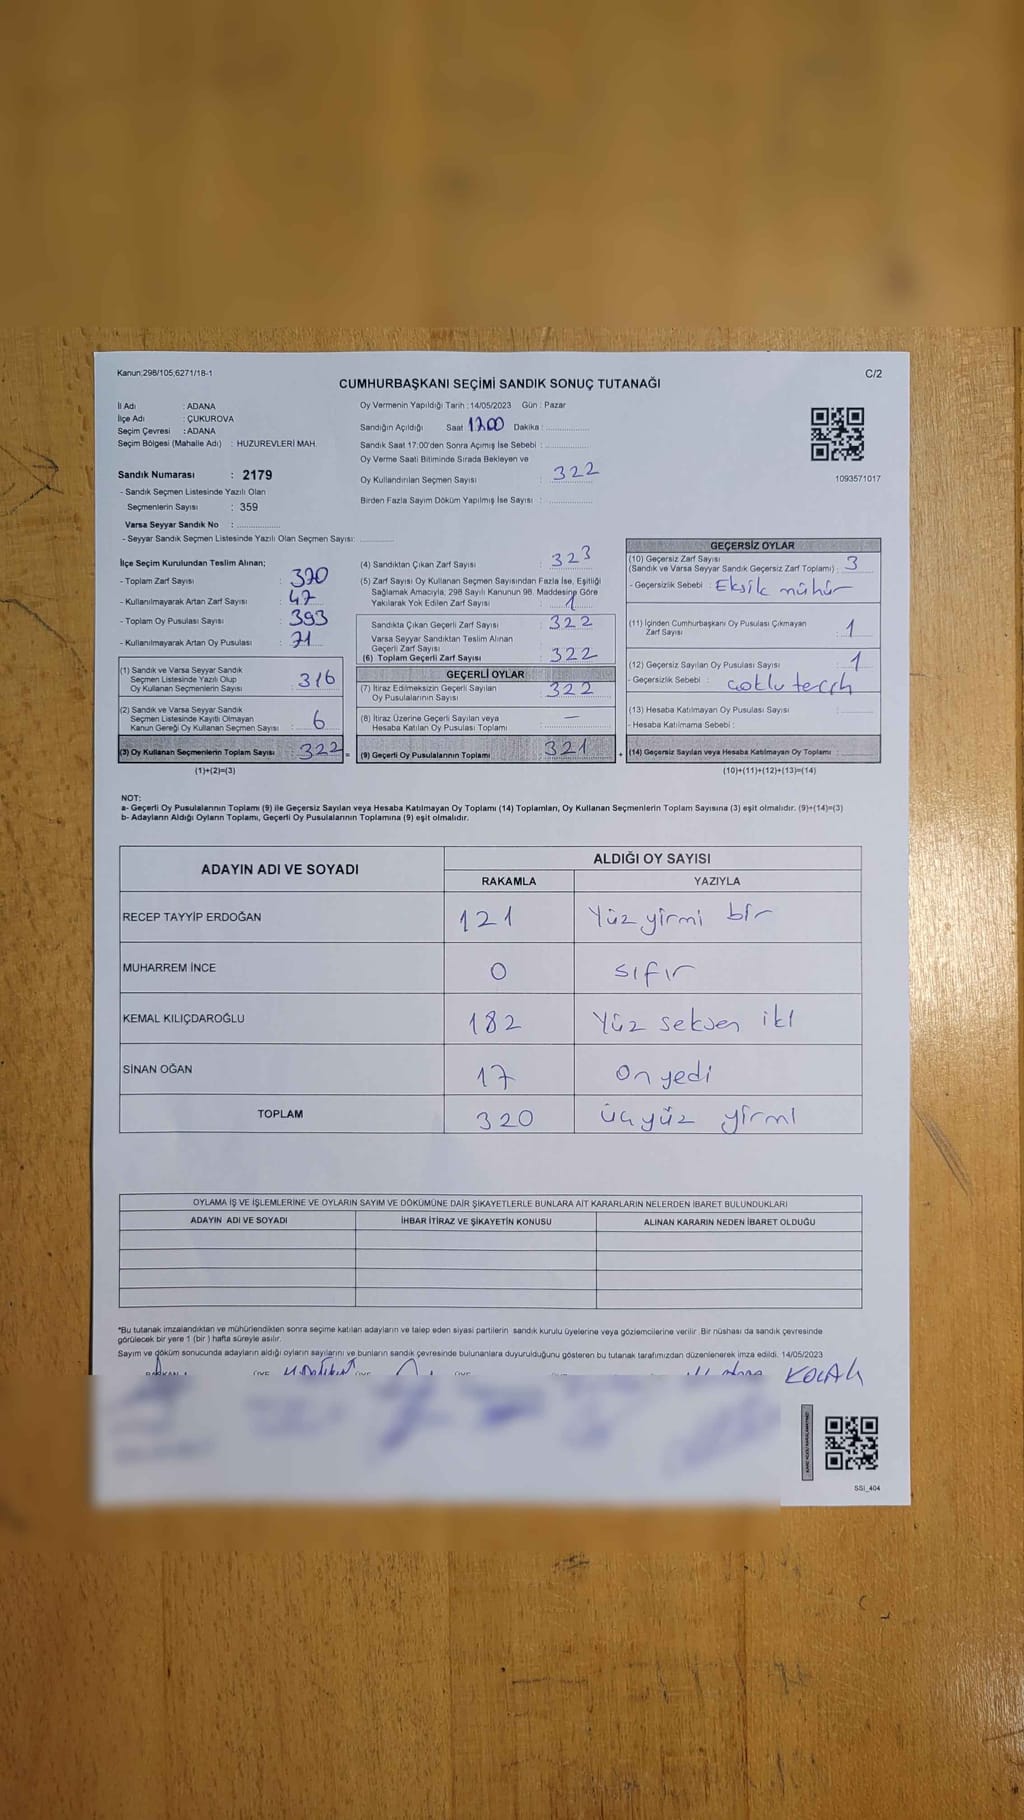 Kanun:298/105,6271/18-1
C/2
CUMHURBAŞKANI SEÇİMİ SANDIK SONUÇ TUTANAĞI
İl Adı : ADANA
İlçe Adı : ÇUKUROVA
Seçim Çevresi : ADANA
Seçim Bölgesi (Mahalle Adı) : HUZUREVLERİ MAH.
Sandık Numarası : 2179
- Sandık Seçmen Listesinde Yazılı Olan
Seçmenlerin Sayısı : 359
Varsa Seyyar Sandık No :
- Seyyar Sandık Seçmen Listesinde Yazılı Olan Seçmen Sayısı:
Oy Vermenin Yapıldığı Tarih : 14/05/2023 Gün : Pazar
Sandığın Açıldığı Saat 1700 Dakika :
Sandık Saat 17:00'den Sonra Açımış İse Sebebi :
Oy Verme Saati Bitiminde Sırada Bekleyen ve
Oy Kullandırılan Seçmen Sayısı : 322
Birden Fazla Sayım Döküm Yapılmış İse Sayısı :
1093571017
İlçe Seçim Kurulundan Teslim Alınan;
- Toplam Zarf Sayısı : 370
- Kullanılmayarak Artan Zarf Sayısı : 47
- Toplam Oy Pusulası Sayısı : 393
- Kullanılmayarak Artan Oy Pusulası : 71
(1) Sandık ve Varsa Seyyar Sandık
Seçmen Listesinde Yazılı Olup
Oy Kullanan Seçmenlerin Sayısı : 316
(2) Sandık ve Varsa Seyyar Sandık
Seçmen Listesinde Kayıtlı Olmayan
Kanun Gereği Oy Kullanan Seçmen Sayısı : 6
(3) Oy Kullanan Seçmenlerin Toplam Sayısı : 322 =
(1)+(2)=(3)
(4) Sandıktan Çıkan Zarf Sayısı : 323
(5) Zarf Sayısı Oy Kullanan Seçmen Sayısından Fazla İse, Eşitliği
Sağlamak Amacıyla, 298 Sayılı Kanunun 98. Maddesine Göre
Yakılarak Yok Edilen Zarf Sayısı : 1
Sandıkta Çıkan Geçerli Zarf Sayısı : 322
Varsa Seyyar Sandıktan Teslim Alınan
Geçerli Zarf Sayısı :
(6) Toplam Geçerli Zarf Sayısı : 322
GEÇERLİ OYLAR
(7) İtiraz Edilmeksizin Geçerli Sayılan
Oy Pusulalarının Sayısı : 322
(8) İtiraz Üzerine Geçerli Sayılan veya
Hesaba Katılan Oy Pusulası Toplamı : —
(9) Geçerli Oy Pusulalarının Toplamı : 321 +
GEÇERSİZ OYLAR
(10) Geçersiz Zarf Sayısı
(Sandık ve Varsa Seyyar Sandık Geçersiz Zarf Toplamı) : 3
- Geçersizlik Sebebi : Eksik mühür
(11) İçinden Cumhurbaşkanı Oy Pusulası Çıkmayan
Zarf Sayısı : 1
(12) Geçersiz Sayılan Oy Pusulası Sayısı : 1
- Geçersizlik Sebebi : çoklu tercih
(13) Hesaba Katılmayan Oy Pusulası Sayısı :
- Hesaba Katılmama Sebebi :
(14) Geçersiz Sayılan veya Hesaba Katılmayan Oy Toplamı :
(10)+(11)+(12)+(13)=(14)
NOT:
a- Geçerli Oy Pusulalarının Toplamı (9) ile Geçersiz Sayılan veya Hesaba Katılmayan Oy Toplamı (14) Toplamları, Oy Kullanan Seçmenlerin Toplam Sayısına (3) eşit olmalıdır. (9)+(14)=(3)
b- Adayların Aldığı Oyların Toplamı, Geçerli Oy Pusulalarının Toplamına (9) eşit olmalıdır.
ADAYIN ADI VE SOYADI ALDIĞI OY SAYISI
RAKAMLA YAZIYLA
RECEP TAYYİP ERDOĞAN 121 Yüz yirmi bir
MUHARREM İNCE 0 sıfır
KEMAL KILIÇDAROĞLU 182 Yüz seksen iki
SİNAN OĞAN 17 on yedi
TOPLAM 320 üçyüz yirmi
OYLAMA İŞ VE İŞLEMLERİNE VE OYLARIN SAYIM VE DÖKÜMÜNE DAİR ŞİKAYETLERLE BUNLARA AİT KARARLARIN NELERDEN İBARET BULUNDUKLARI
ADAYIN ADI VE SOYADI İHBAR İTİRAZ VE ŞİKAYETİN KONUSU ALINAN KARARIN NEDEN İBARET OLDUĞU
*Bu tutanak imzalandıktan ve mühürlendikten sonra seçime katılan adayların ve talep eden siyasi partilerin sandık kurulu üyelerine veya gözlemcilerine verilir. Bir nüshası da sandık çevresinde
görülecek bir yere 1 (bir) hafta süreyle asılır.
Sayım ve döküm sonucunda adayların aldığı oyların sayılarını ve bunların sandık çevresinde bulunanlara duyurulduğunu gösteren bu tutanak tarafımızdan düzenlenerek imza edildi. 14/05/2023
SSİ_404